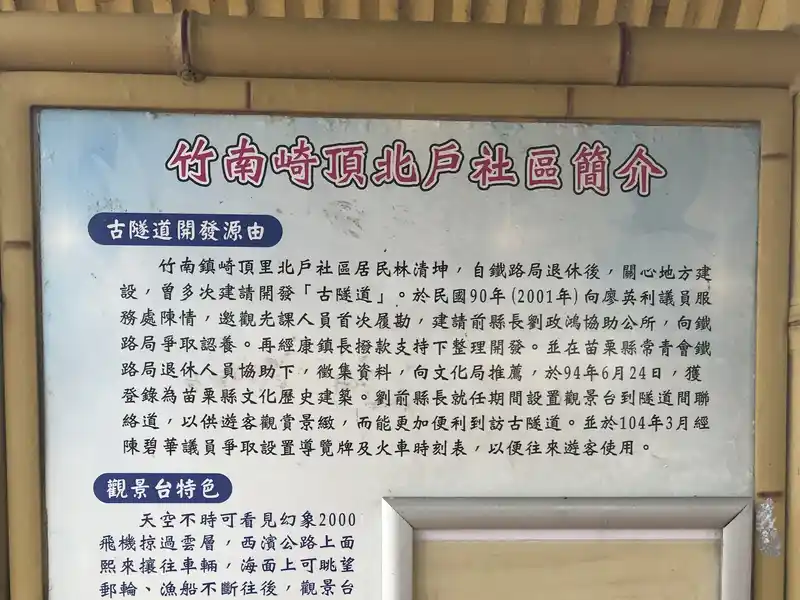 竹南崎頂北戶社區簡介
古隧道開發源由
竹南鎮崎頂里北戶社區居民林清坤，自鐵路局退休後，關心地方建
設，曾多次建請開發「古隧道」。於民國90年(2001年)向廖英利議員服
務處陳情，邀觀光課人員首次履勘，建請前縣長劉政鴻協助公所，向鐵
路局爭取認養。再經康鎮長撥款支持下整理開發。並在苗栗縣常青會鐵
路局退休人員協助下，徵集資料，向文化局推薦，於94年6月24日，獲
登錄為苗栗縣文化歷史建築。劉前縣長就任期間設置觀景台到隧道間聯
絡道，以供遊客觀賞景緻，而能更加便利到訪古隧道。並於104年3月經
陳碧華議員爭取設置導覽牌及火車時刻表，以便往來遊客使用。
觀景台特色
天空不時可看見幻象2000
飛機掠過雲層，西濱公路上面
熙來攘往車輛，海面上可眺望
郵輪、漁船不斷往後，觀景台